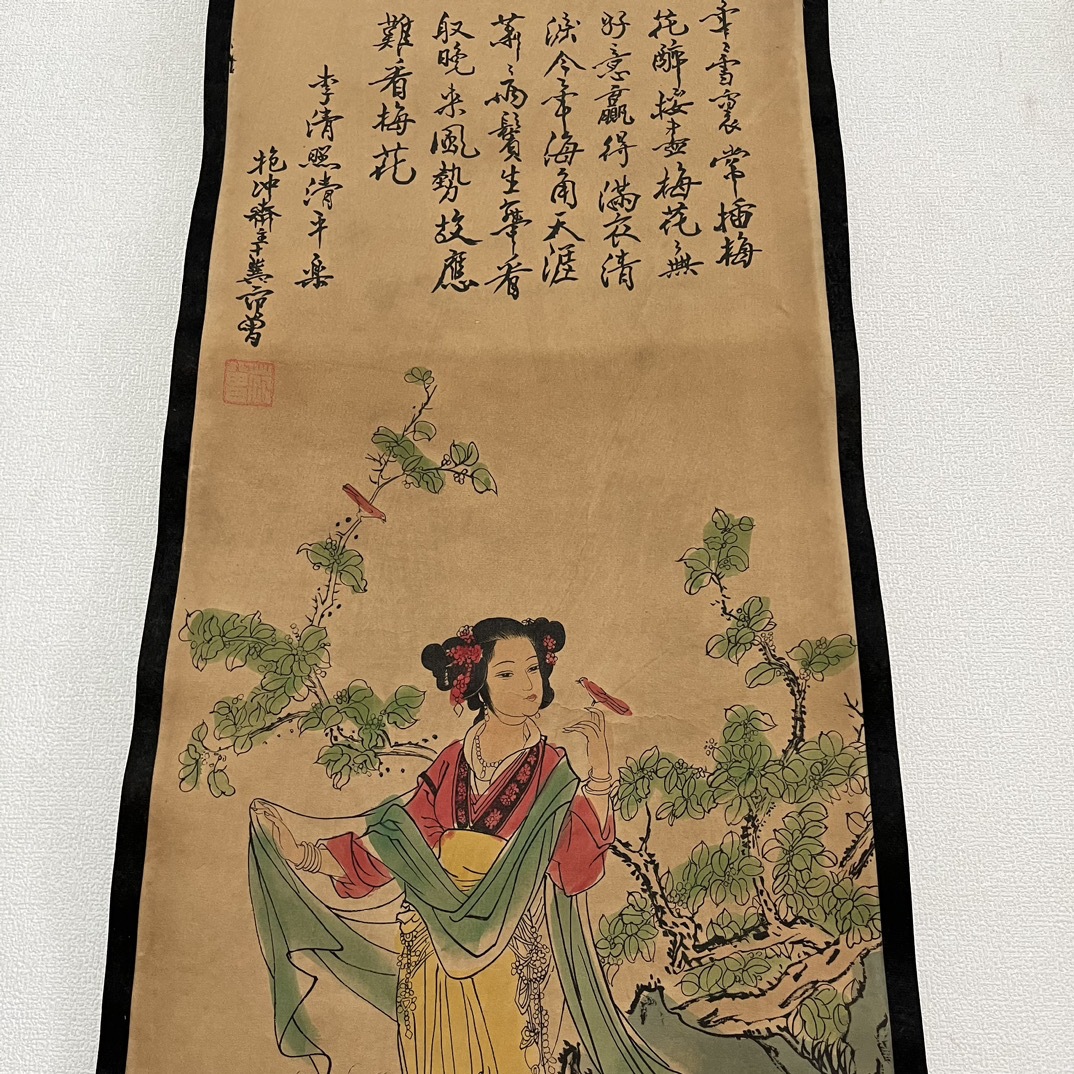 年〻雪裏常插梅
花醉挼盡梅花無
好意贏得滿衣清
淚今年海角天涯
蕭〻兩鬢生華看
取晚来風勢故應
難看梅花
李清照清平樂
抱冲齋主十翼范曾